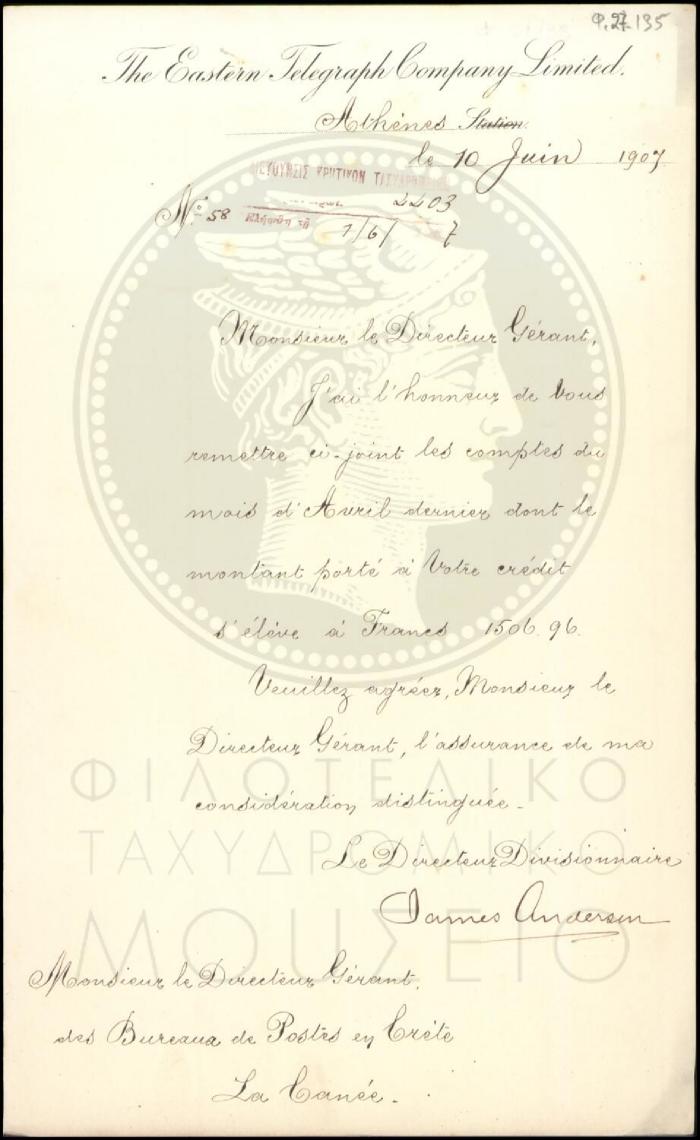 Φ.27.135
The Eastern Telegraph Company Limited.
Athènes Station.
le 10 Juin 1907
ΚΡΗΤΙΚΩΝ
2203
Nº 58
Ελήφθη τῇ 1/6/ 7
Monsieur le Directeur Gérant,
J'ai l'honneur de Vous
remettre ci-joint les comptes du
mois d'Avril dernier dont le
montant porté à Votre crédit
s'élève à Francs 1506.96.
Veuillez agréer, Monsieur le
Directeur Gérant, l'assurance de ma
considération distinguée.
ΦΙΛΟΤΕΛΙΚΟ
ΤΑΧΥΔΡΟΜΙΚΟ
ΜΟΥΣΕΙΟ
Le Directeur Divisionnaire
James Anderson
Monsieur le Directeur Gérant,
des Bureaux de Postes en Crète
La Canée.